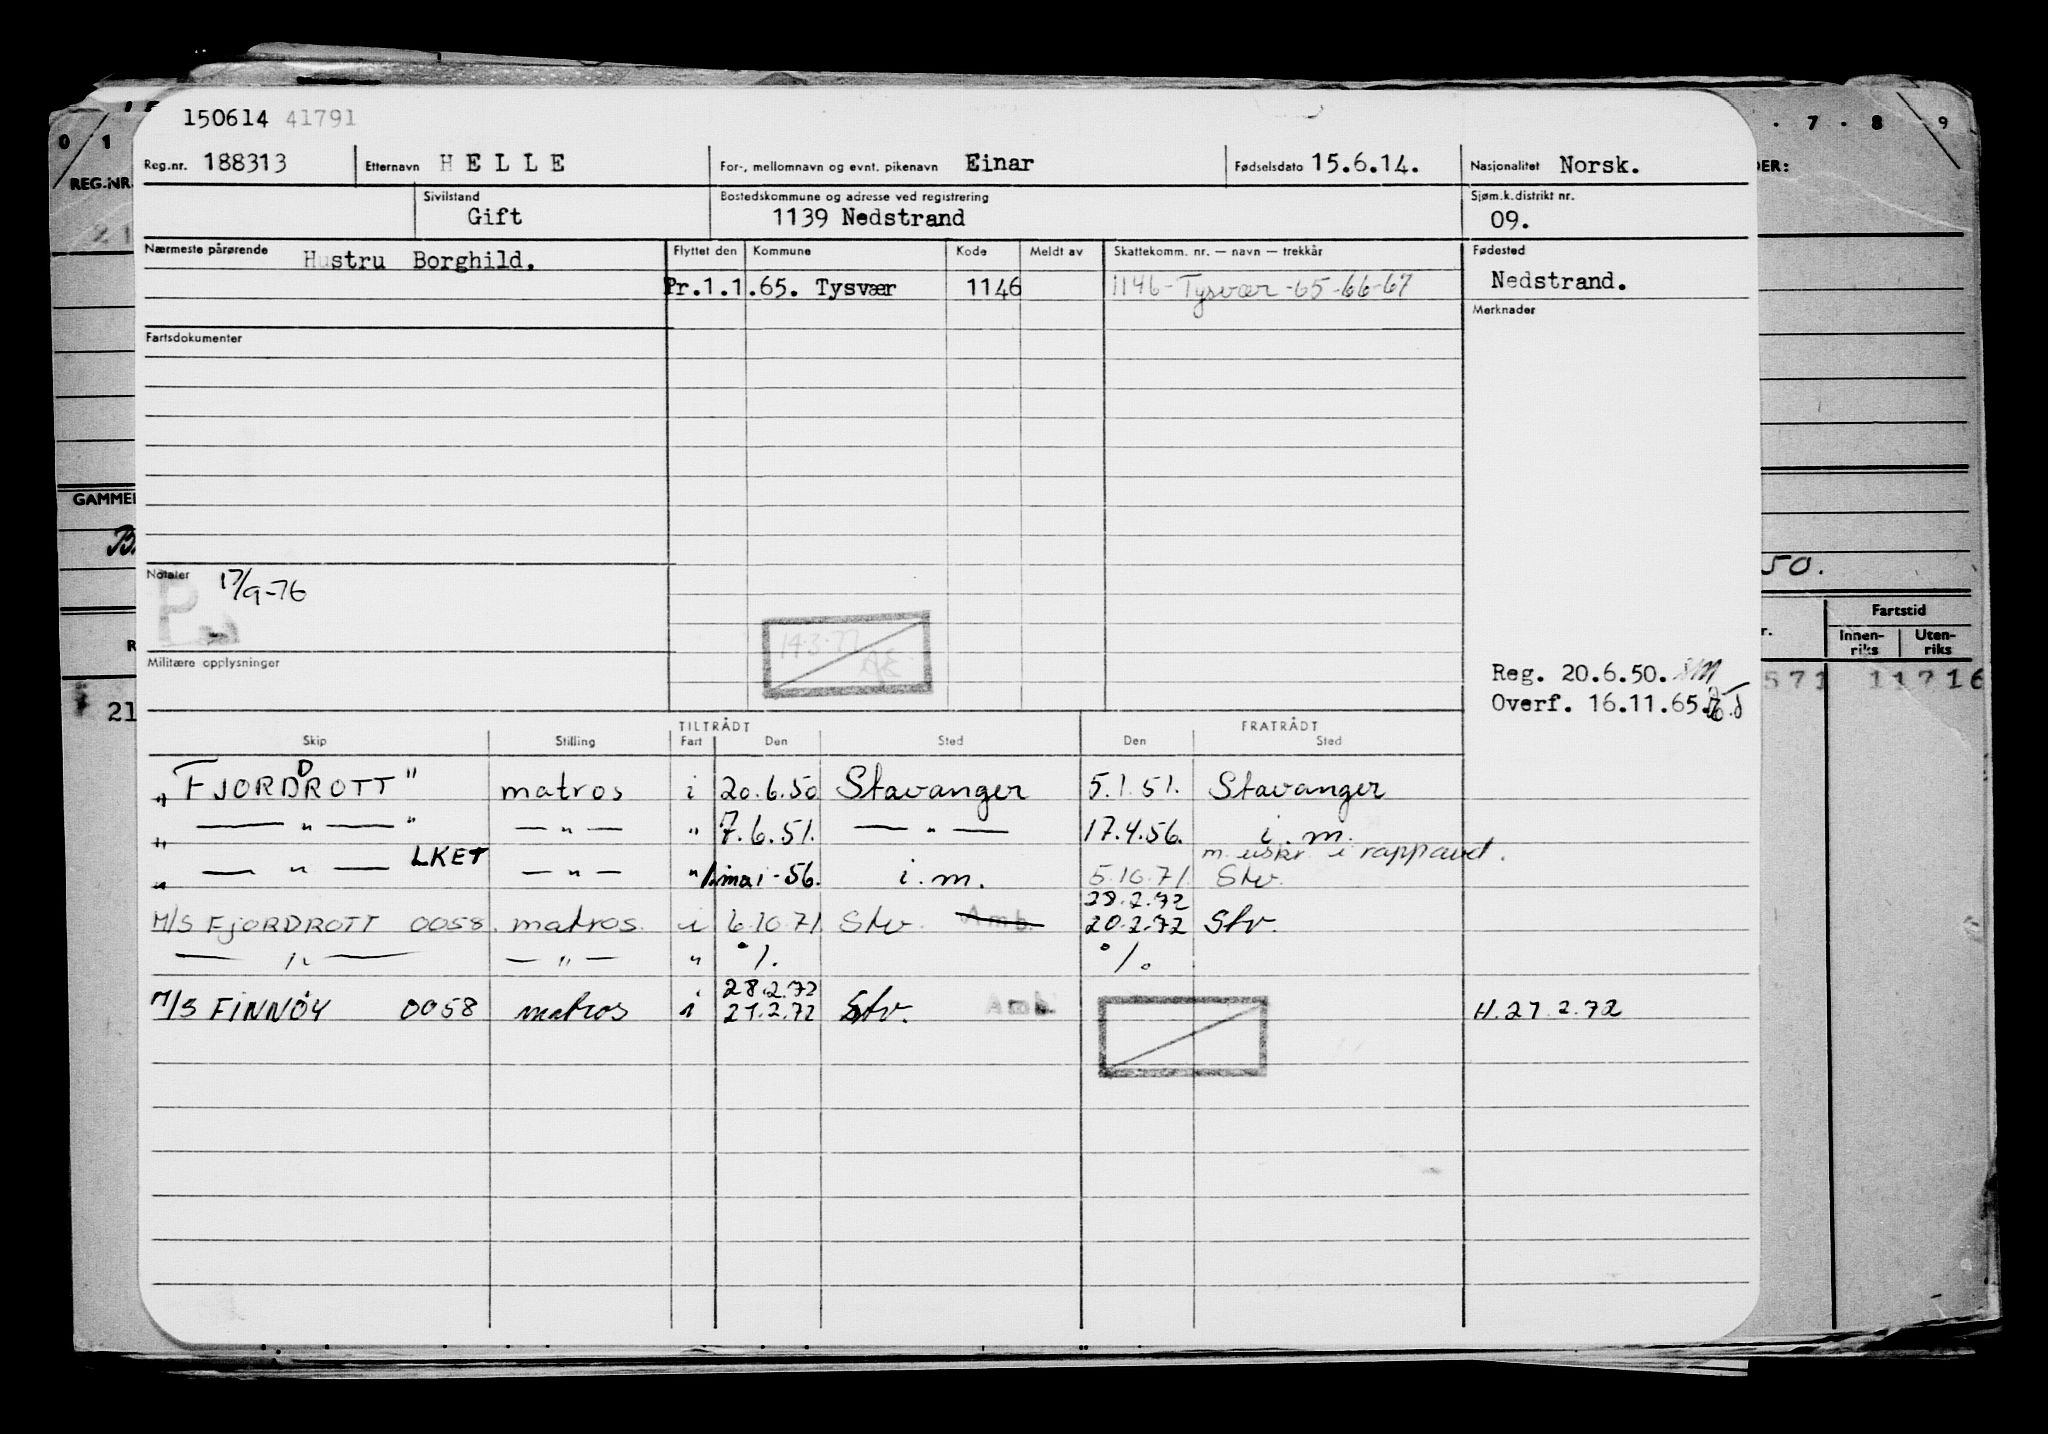 150614 41791
Reg.nr. 188313 Etternavn HELLE For-, mellomnavn og evnt. pikenavn Einar Fødselsdato 15.6.14. Nasjonalitet Norsk.
Sivilstand Gift Bostedskommune og adresse ved registrering 1139 Nedstrand Sjøm.k.distrikt nr. 09.
Nærmeste pårørende Hustru Borghild. Flyttet den Kommune Kode Meldt av Skattekomm. nr. — navn — trekkår Fødested Nedstrand.
Pr.1.1.65. Tysvær 1146 1146-Tysvær-65-66-67
Merknader
Fartsdokumenter
Notater 17/9-76
14.3.77
Militære opplysninger
Reg. 20.6.50.
Overf. 16.11.65.
TILTRÅDT FRATRÅDT
Skip Stilling Fart Den Sted Den Sted
„FJORDDROTT" matros i 20.6.50 Stavanger 5.1.51. Stavanger
„ — " — " — " — " 7.6.51. — " — 17.4.56. i.m.
m. uskr. i rappavd.
„ — " — LKET — " — " 1.mai-56. i.m. 5.10.71. Stv.
28.2.72
M/S FJORDROTT 0058. matros. i 6.10.71 Stv. Amb. 20.2.72 Stv.
— " — — " — " %. %.
28.2.72
M/S FINNÖY 0058 matros i 21.2.72 Stv. Amb. H.27.2.72
0 1 7 · 8 9
REG.NR.
DER:
21
GAMMEL
50.
Fartstid
Innen-riks Uten-riks
571 11716
21